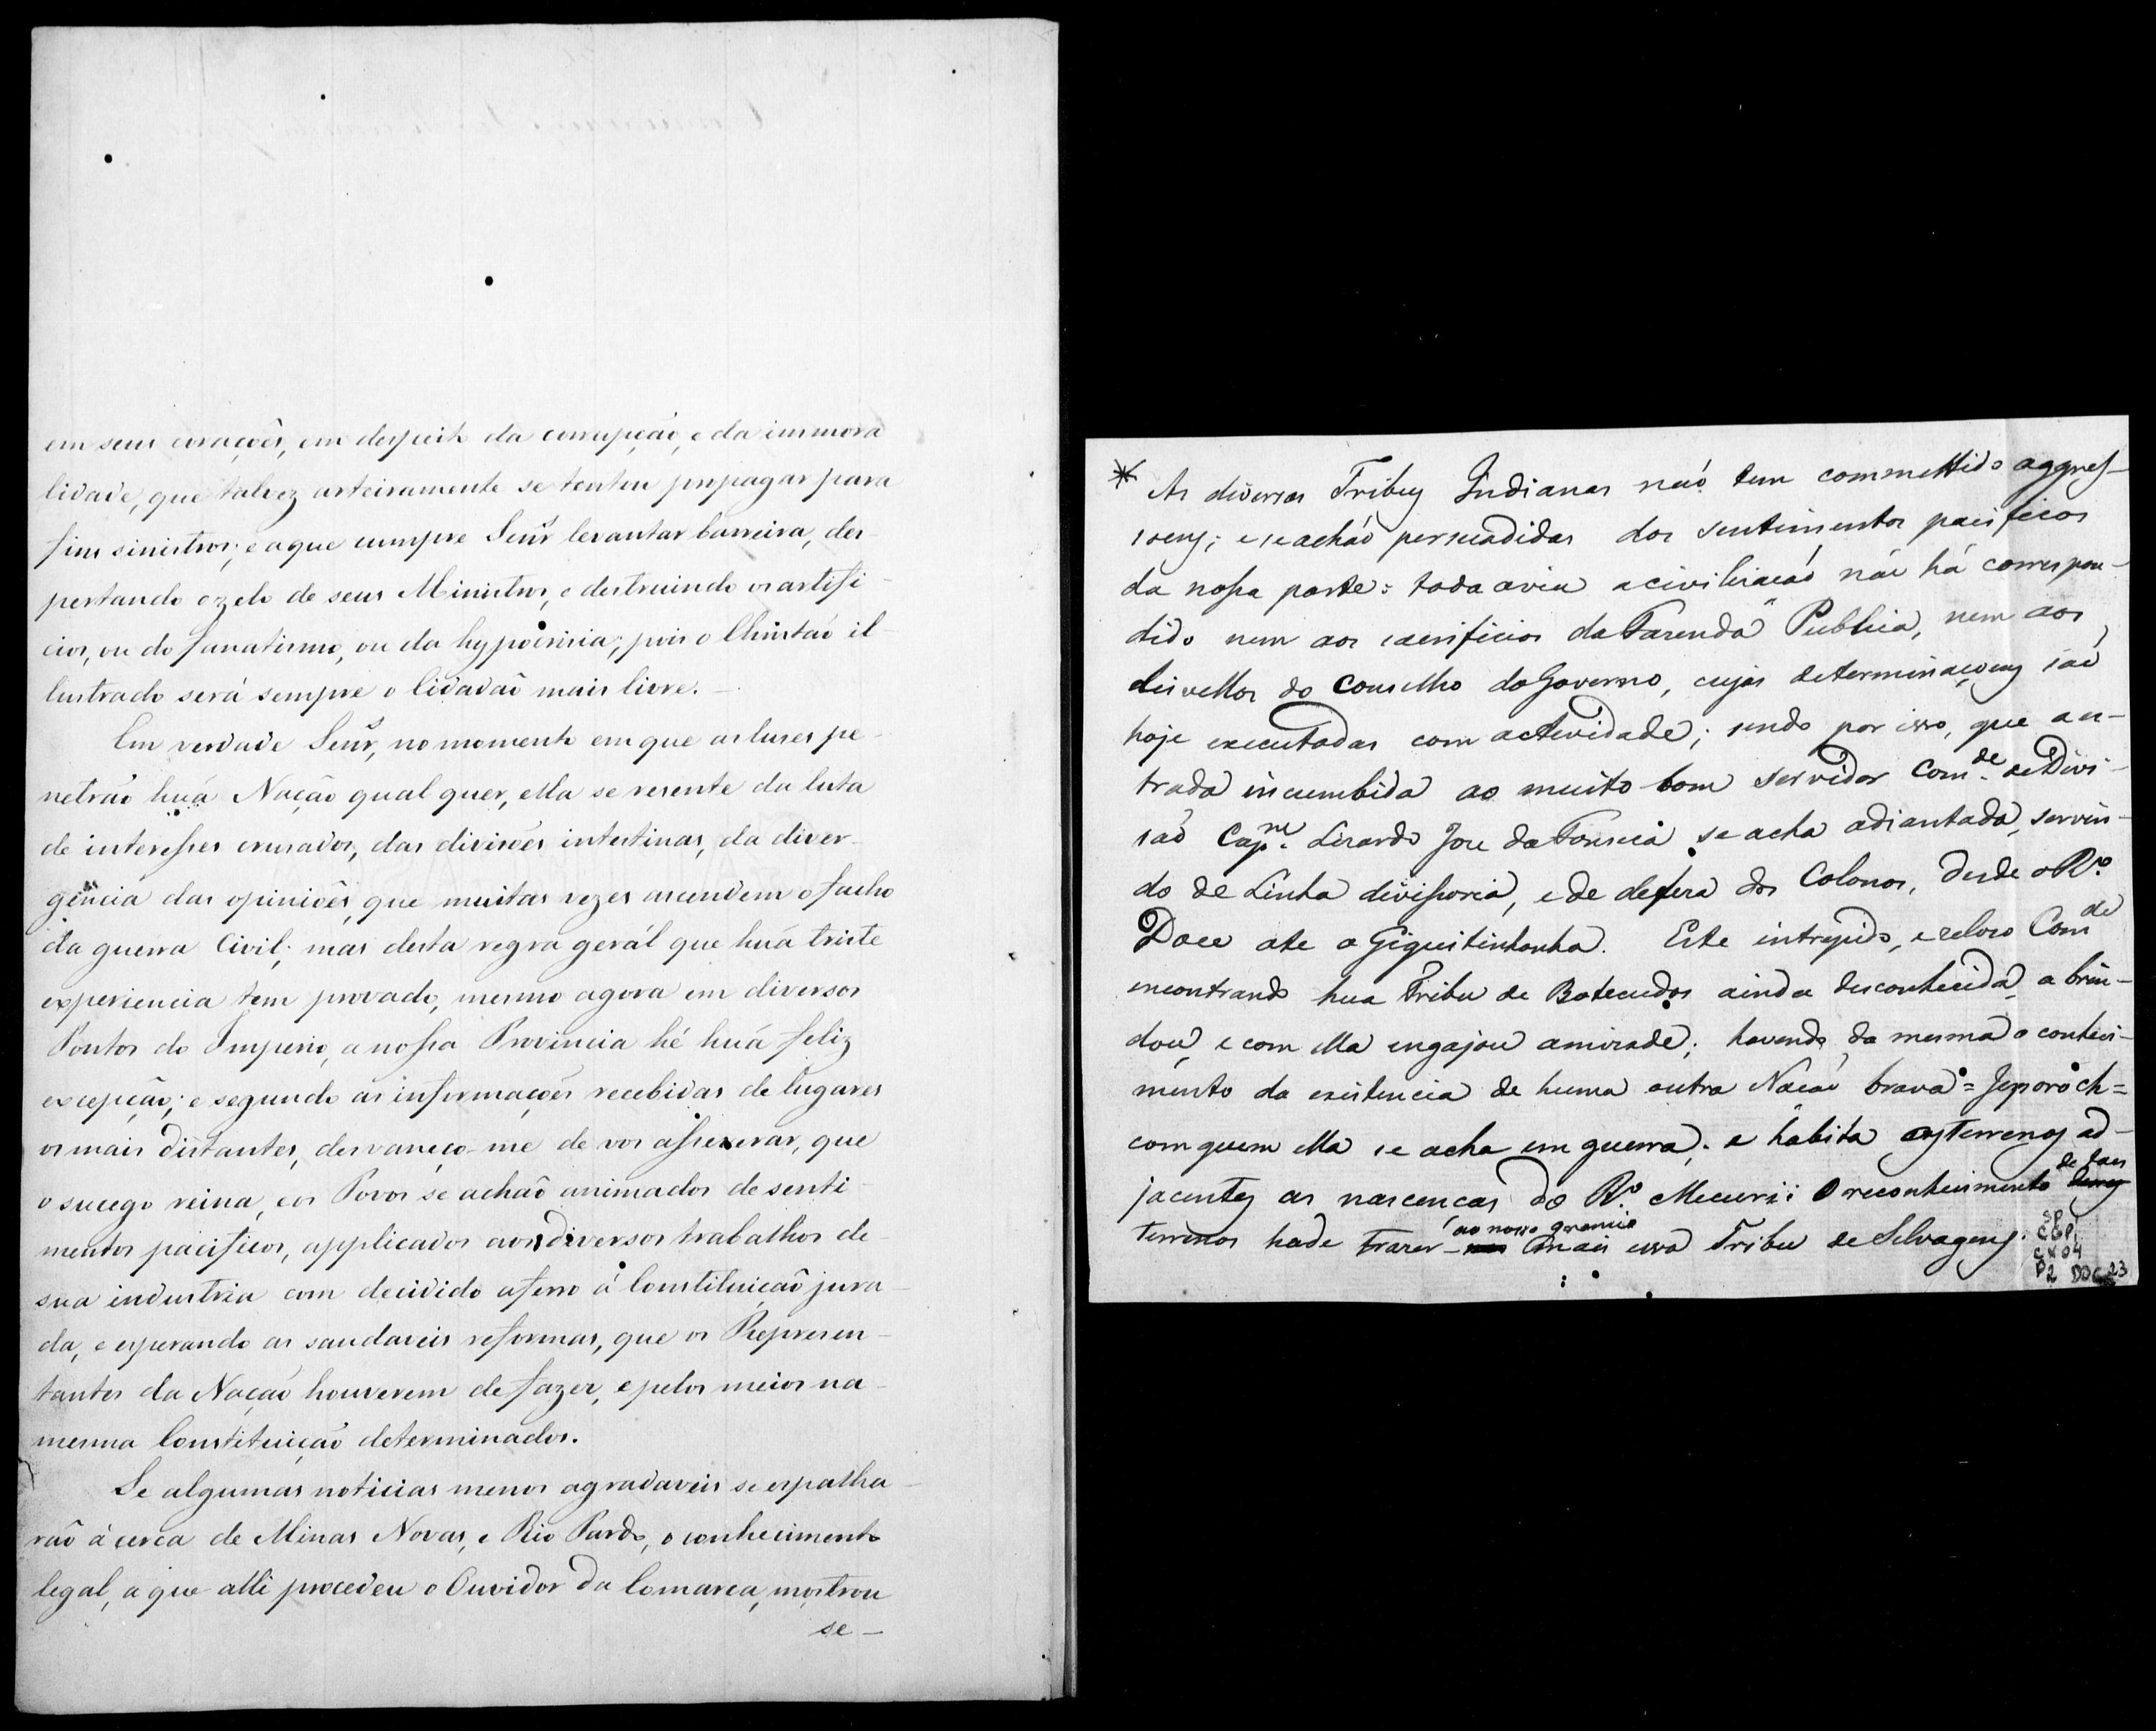 em seus coraçoẽs, em despeito da corrupção, e da immora
lidade, que talvez arteiramente se tentou propagar para
fins sinistros; e a que cumpre Senr.ˢ levantar barreira, des-
pertando o zelo de seus Ministros, e destruindo os artifi-
cios, ou do fanatismo, ou da hypocrisia; pois o Christão il-
lustrado será sempre o Cidadão mais livre. -
Em verdade Senr.ˢ, no momento em que as luses pe-
netrão huã Nação qual quer, ella se resente da luta
de interesses crusados, das divisoẽs intestinas, da diver-
gencia das opinioẽs, que muitas vezes ascendem o facho
da guerra Civil; mas desta regra gerál que huã triste
experiencia tem provado, mesmo agora em diversos
Pontos do Imperio, a nossa Provincia hé huã feliz
excepção; e segundo as informaçoẽs recebidas de lugares
os mais distantes, desvaneço-me de vos asseverar, que
o sucego reina, e os Povos se achaõ animados de senti-
mentos pacificos, applicados aos diversos trabalhos de
sua industria com decidido aferro á Constituição jura-
da, e esperando as saudaveis reformas, que os Represen-
tantes da Nação houverem de fazer, e pelos meios na-
mesma Constituição determinados.
Se algumas noticias menos agradaveis se espalha-
raõ á cerca de Minas Novas, e Rio Pardo, o conhecimento
legal, a que alli procedeu o Ouvidor da Comarca, mostrou
se -
* As diversas Tribuz Indianas naõ tem commettido aggres-
soeng; e se achaõ persuadidas dos sentimentos pacificos
da nossa parte: toda avia a civilisacaõ não há correspon-
dido nem aos sacrificios da Fazenda Publica, nem aos
disvellos do Conselho do Governo, cujas determinaçoens saõ
hoje executadas com actividade; sendo por isso, que a es-
trada incumbida ao muito bom servidor Com.ᵈᵉ de Divi-
saõ Cap.ᵐ Lizardo Jose da Fonseca se acha adiantada, servin-
do de Linha divisoria, e de defesa dos Colonos, desde o R.º
Doce ate o Giquitinhonha. Este intrepido, e zeloso Com.ᵈᵉ
encontrando hua Tribu de Botecudos ainda desconhecida, a brin-
dou, e com ella engajou amizade; havendo da mesma o conheci-
mento da existencia de huma outra Nacaõ brava = Jeporóch =
com quem ella se acha em guerra, e habita os Terrenos ad-
jacentes as nascencas do R.º Mucuri: O reconhecimento de taes
terrenos hade trazer ao nosso gremio mais essa Tribu de Selvagens.
SP
CGP1
CX04
P2 DOC 23